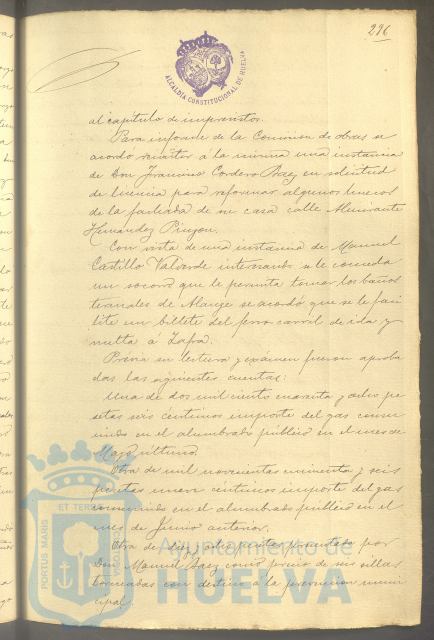 296
ALCALDÍA CONSTITUCIONAL DE HUELVA
al capitulo de imprevistos.
Para informe de la Comision de obras se
acordó remitir á la misma una instancia
de Don Francisco Cordero Baez en solicitud
de licencia para reformar algunos huecos
de la fachada de su casa calle Almirante
Hernández Pinzon.
Con vista de una instancia de Manuel
Castillo Valverde interesando se le conceda
un socorro que le permita tomar los baños
termales de Alange se acordó que se le faci
lite un billete del ferro carril de ida y
vuelta á Zafra.
Previa su lectura y exámen fueron aproba
das las siguientes cuentas:
Una de dos mil ciento cuarenta y ocho pe
setas seis céntimos importe del gas consu
mido en el alumbrado público en el mes de
Mayo último.
Otra de mil novecientas cincuenta y seis
pesetas nueve céntimos importe del gas
consumido en el alumbrado publico en el
mes de Junio anterior.
Otra de diez y ocho pesetas presentada por
Don Manuel Baez como precio de seis sillas
torneadas con destino á la prevencion muni
cipal.
PORTUS MARIS ET TERRAE
Ayuntamiento de
HUELVA